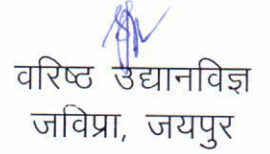 वरिष्ठ उद्यानविज्ञ
जविप्रा, जयपुर